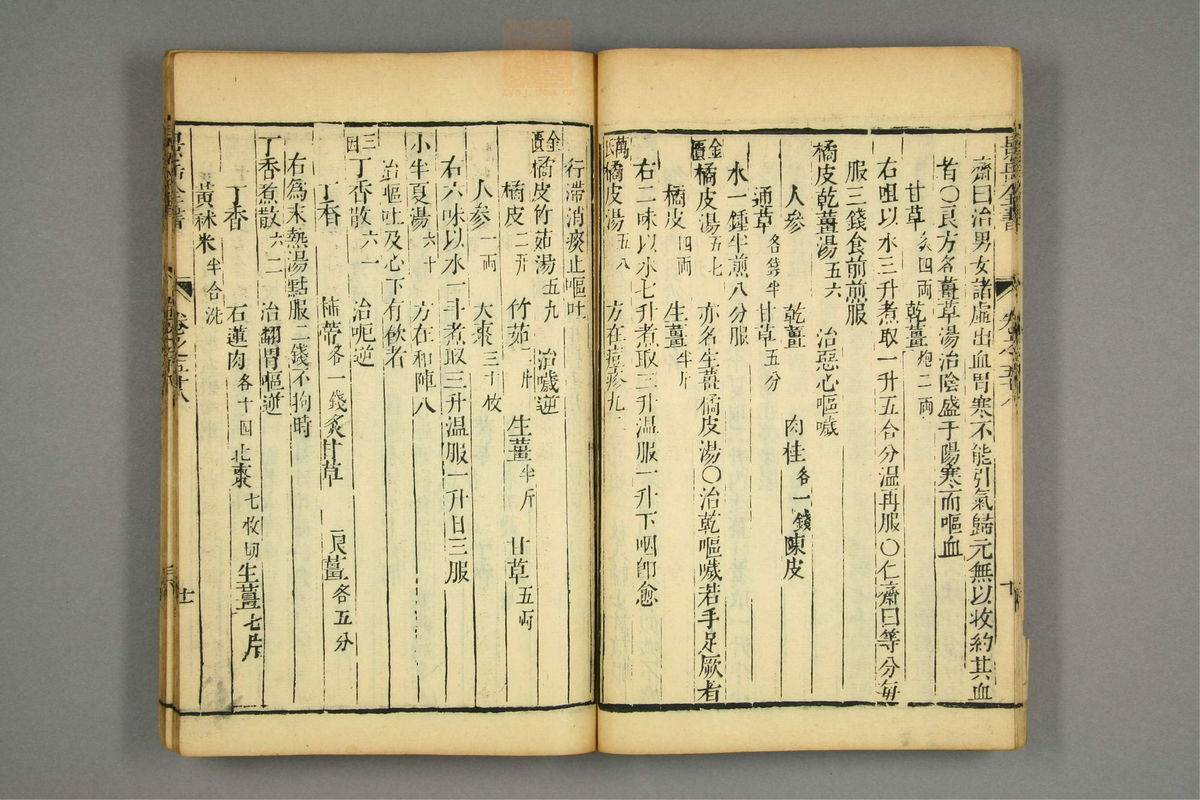 齋曰治男女諸虛出血胃寒不能引氣歸元無以收約其血
者〇良方名薑草湯治陰盛于陽寒而嘔血
甘草炙四両 乾薑炮二両
右咀以水三升煮取一升五合分温再服〇仁齋曰等分毎
服三錢食前煎服
橘皮乾薑湯五六 治惡心嘔噦
人參 乾薑 肉桂各一錢 陳皮
通草各錢半 甘草五分
水一鍾半煎八分服
金匱橘皮湯五七 亦名生薑橘皮湯〇治乾嘔噦若手足厥者
橘皮四両 生薑半斤
右二味以水七升煮取三升温服一升下咽卽愈
萬氏橘皮湯五八 方在痘疹九
行滯消痰止嘔吐
金匱橘皮竹茹湯五九 治噦逆
橘皮二升 竹茹二升 生薑半斤 甘草五両
人參一両 大棗三十枚
右六味以水一斗煮取三升温服一升日三服
小半夏湯六十 方在和陣八
治嘔吐及心下有飲者
三因丁香散六一 治呃逆
丁香 柿蒂各一錢 炙甘草 良薑各五分
右為末熱湯點服二錢不拘時
丁香煮散六二 治翻胃嘔逆
丁香 石蓮肉各十四 北棗七枚切 生薑七片
黃秫米半合洗
景岳全書 卷之五十八 廿